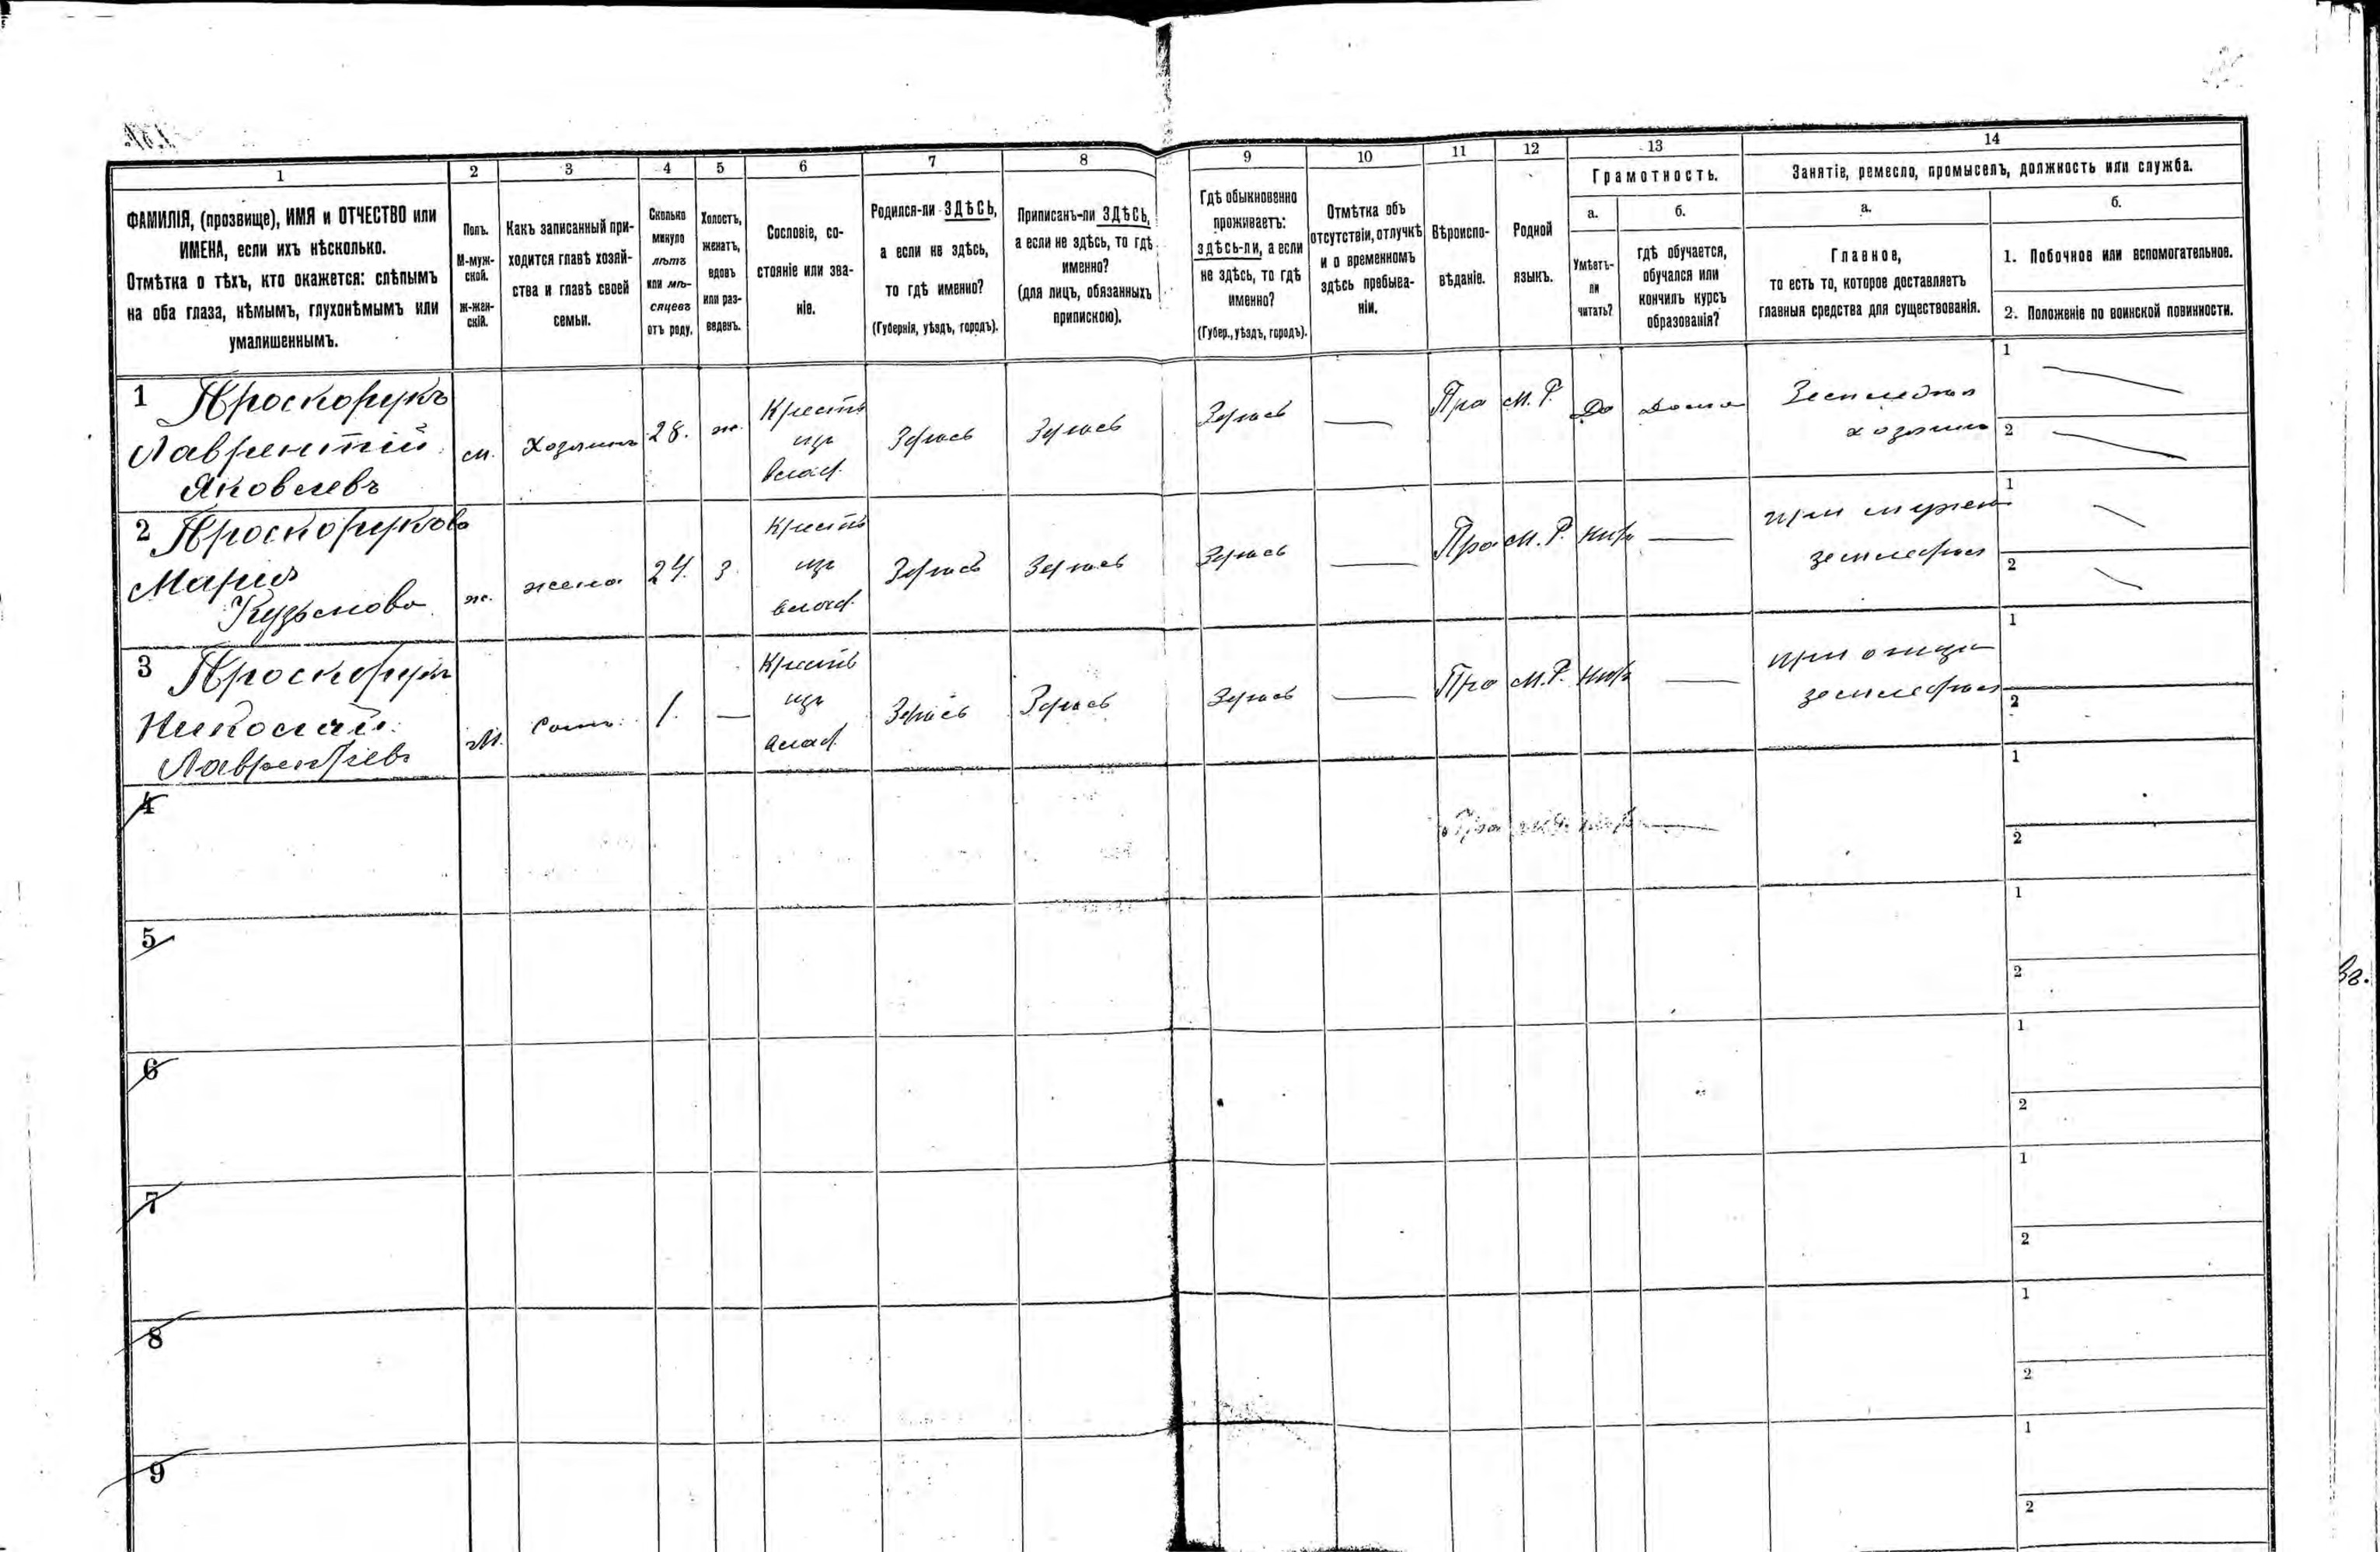 1
2
3
4
5
6
7
8
9
10
11
12
13
14
ФАМИЛІЯ, (прозвище), ИМЯ и ОТЧЕСТВО или
ИМЕНА, если ихъ нѣсколько.
Отмѣтка о тѣхъ, кто окажется: слѣпымъ
на оба глаза, нѣмымъ, глухонѣмымъ или
умалишеннымъ.
Полъ.
М-муж-
ской.
Ж-жен-
скій.
Какъ записанный при-
ходится главѣ хозяй-
ства и главѣ своей
семьи.
Сколько
минуло
лѣтъ
или мѣ-
сяцевъ
отъ роду.
Холостъ,
женатъ,
вдовъ
или раз-
веденъ.
Сословіе, со-
стояніе или зва-
ніе.
Родился-ли ЗДѢСЬ,
а если не здѣсь,
то гдѣ именно?
(Губернія, уѣздъ, городъ).
Приписанъ-ли ЗДѢСЬ,
а если не здѣсь, то гдѣ
именно?
(для лицъ, обязанныхъ
припискою).
Гдѣ обыкновенно
проживаетъ:
здѣсь-ли, а если
не здѣсь, то гдѣ
именно?
(Губер., уѣздъ, городъ).
Отмѣтка объ
отсутствіи, отлучкѣ
и о временномъ
здѣсь пребыва-
ніи.
Вѣроиспо-
вѣданіе.
Родной
языкъ.
Грамотность.
а.
Умѣетъ-
ли
читать?
б.
гдѣ обучается,
обучался или
кончилъ курсъ
образованія?
Занятіе, ремесло, промыселъ, должность или служба.
а.
Главное,
то есть то, которое доставляетъ
главныя средства для существованія.
б.
1. Побочное или вспомогательное.
2. Положеніе по воинской повинности.
1 Проскорукъ
Лаврентій
Яковлевъ
м.
Хозяинъ
28.
ж.
Кресть
изъ
влад.
Здѣсь
Здѣсь
Здѣсь
Пра
М. Р.
Да
Дома
Земледѣл
хозяинъ
1
2
2 Проскорукова
Марія
Кузьмова
ж.
жена
24.
З.
Кресть
изъ
влад.
Здѣсь
Здѣсь
Здѣсь
Пра
М. Р.
Нѣтъ
при мужѣ
земледѣл
1
2
3 Проскорукъ
Николай
Лаврентіевъ
М.
Сынъ
1.
Кресть
изъ
влад.
Здѣсь
Здѣсь
Здѣсь
Пра
М. Р.
Нѣтъ
при отцѣ
земледѣл
1
2
4
1
2
5
1
2
6
1
2
7
1
2
8
1
2
9
1
2